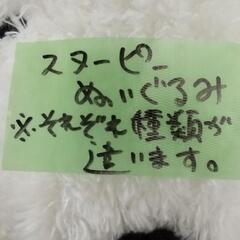 スターピー
ぬいぐるみ
※それぞれ種類が
違います。